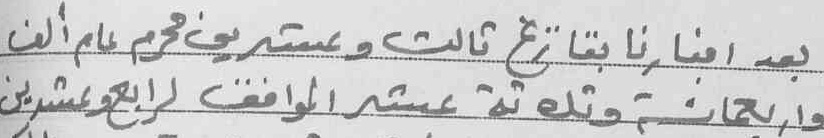 بعد اخبارنا بتاريخ ثالث وعشرين محرم عام ألف
واربعمائة وثلاثة عشر الموافق لرابع وعشرين